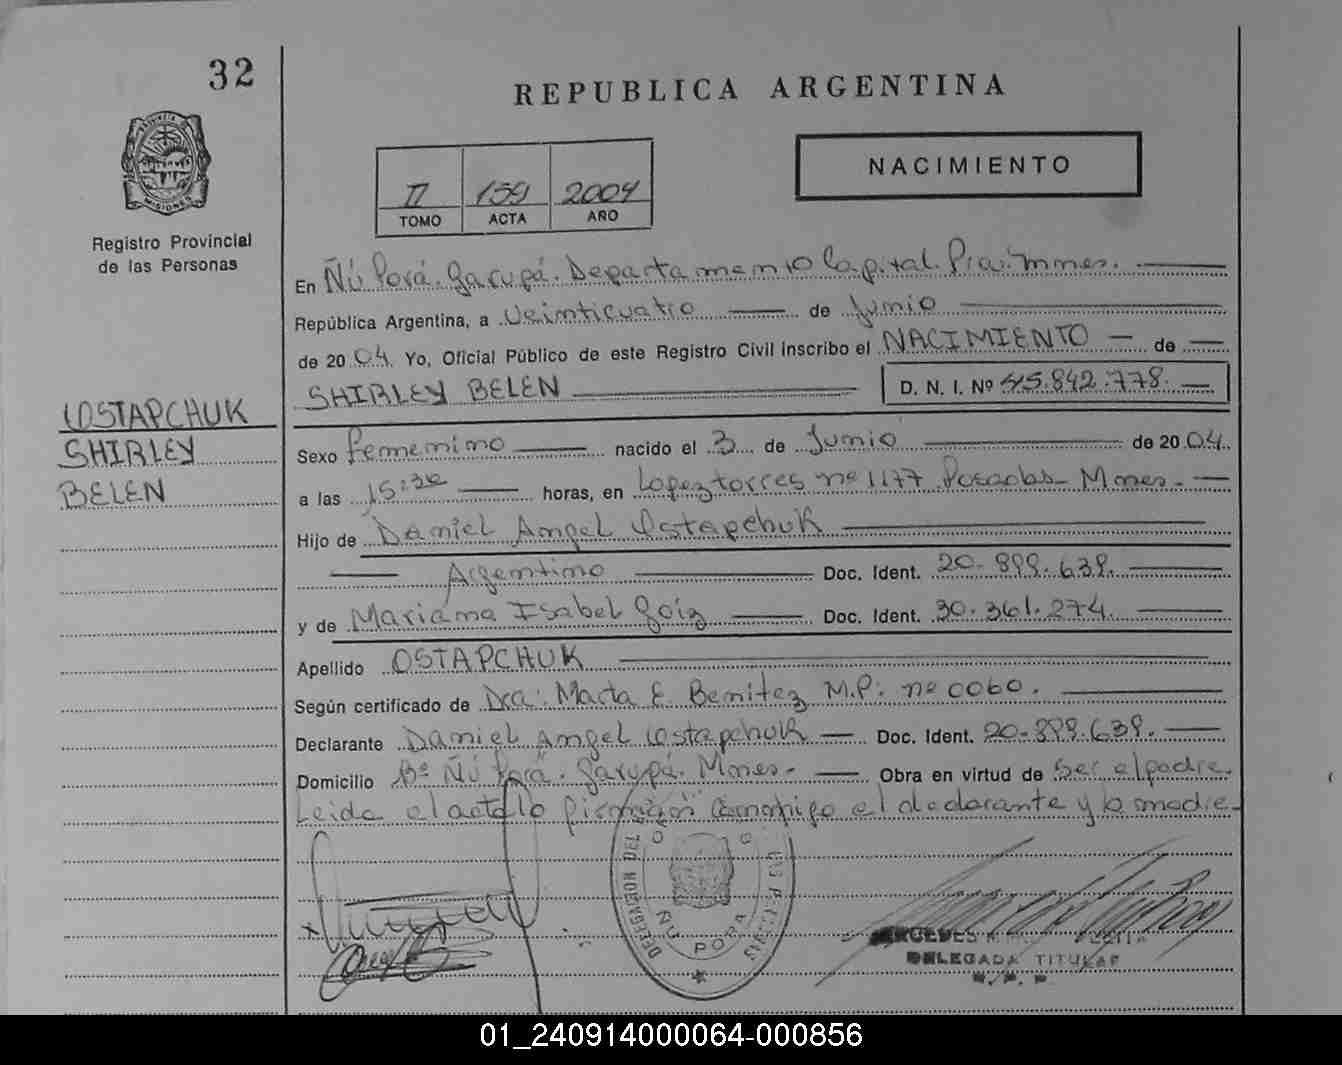 32
REPUBLICA ARGENTINA
NACIMIENTO
II 159 2004
TOMO ACTA AÑO
MISIONES
Registro Provincial
de las Personas
En Ñú Porá. Garupá. Departamento Capital. Pcia: Mnes.
República Argentina, a Veinticuatro de Junio
de 2004. Yo, Oficial Público de este Registro Civil inscribo el NACIMIENTO de
SHIRLEY BELEN D. N. I. Nº 45.842.778.
OSTAPCHUK
SHIRLEY
BELEN
Sexo femenino nacido el 3 de Junio de 2004.
a las 15:30 horas, en Lopez torres nº 1177 Posadas- Mnes.-
Hijo de Daniel Angel Ostapchuk
Argentino Doc. Ident. 20.899.639.
y de Mariana Isabel Goiz Doc. Ident. 30.361.274.
Apellido OSTAPCHUK
Según certificado de Dra: Marta E. Benitez M.P: nº 0060.
Declarante Daniel Angel Ostapchuk Doc. Ident. 20.899.639.
Domicilio Bº Ñú Porá. Garupá. Mnes.- Obra en virtud de Ser el padre.
Leida el acta lo firman conmigo el declarante y la madre-
DELEGACION DEL
ÑU PORA
DELEGADA TITULAR
01_240914000064-000856